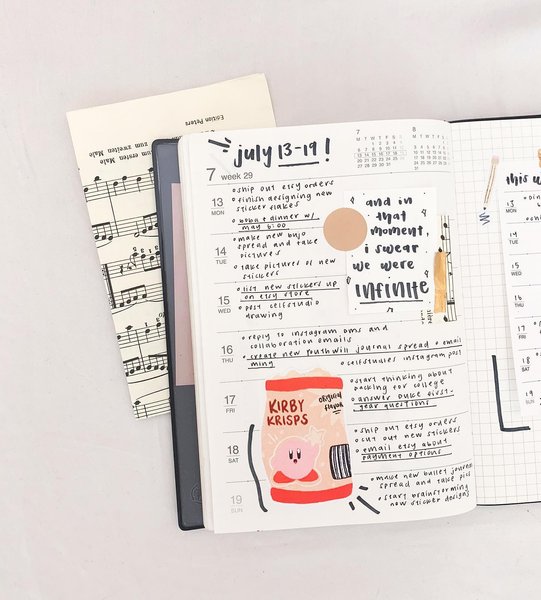 Edition Peters
zum ersten Male
zum zweiten Male
july 13-19!
7 week 29
7
M T W T F S S
8
M T W T F S S
13
MON
• ship out etsy orders
• finish designing new
sticker flakes
• boba + dinner w/
may 6:00
14
TUE
• make new bujo
spread and take
pictures
• take pictures of new
stickers
15
WED
• list new stickers up
on etsy store
• post celfstudio
drawing
and in
that
moment,
i swear
we were
infinite
16
THU
• reply to instagram dms and
collaboration emails
• create new youthwill journal spread + email
ming
• celfstudies instagram post
17
FRI
• start thinking about
packing for college
• answer duke first-
year questions
KIRBY
KRISPS
original
flavor
18
SAT
• ship out etsy orders
• cut out new stickers
• email etsy about
payment options
19
SUN
• make new bullet journ
spread and take pic
• start brainstorming
new sticker designs
this w
13
MON
14
TUE
15
WED
16
THU
17
FRI
18
SAT
19
SUN